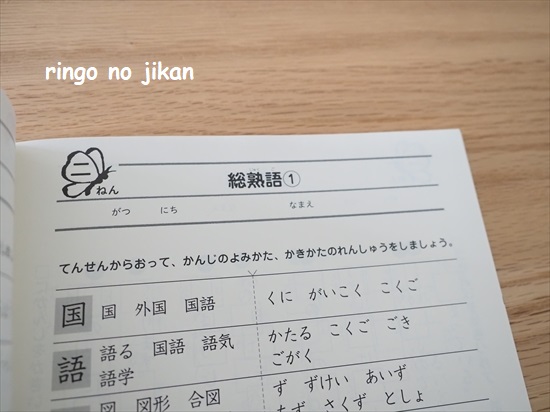 ringo no jikan
二ねん
総熟語①
がつ にち なまえ
てんせんからおって、かんじのよみかた、かきかたのれんしゅうをしましょう。
国 国 外国 国語 くに がいこく こくご
語 語る 国語 語気 かたる こくご ごき
語学 ごがく
図 図形 合図 ず ずけい あいず
さくず としょ